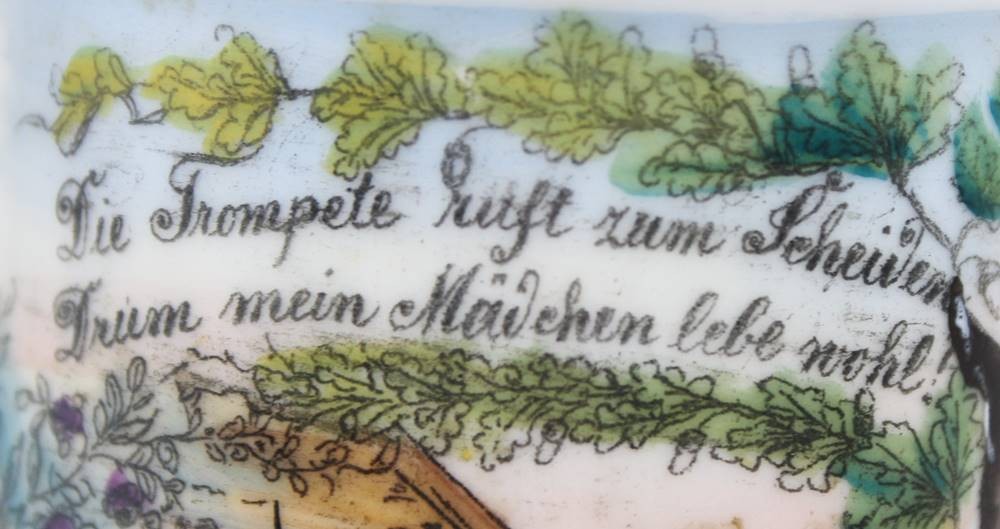 Die Trompete ruft zum Scheiden
Drum mein Mädchen lebe wohl!